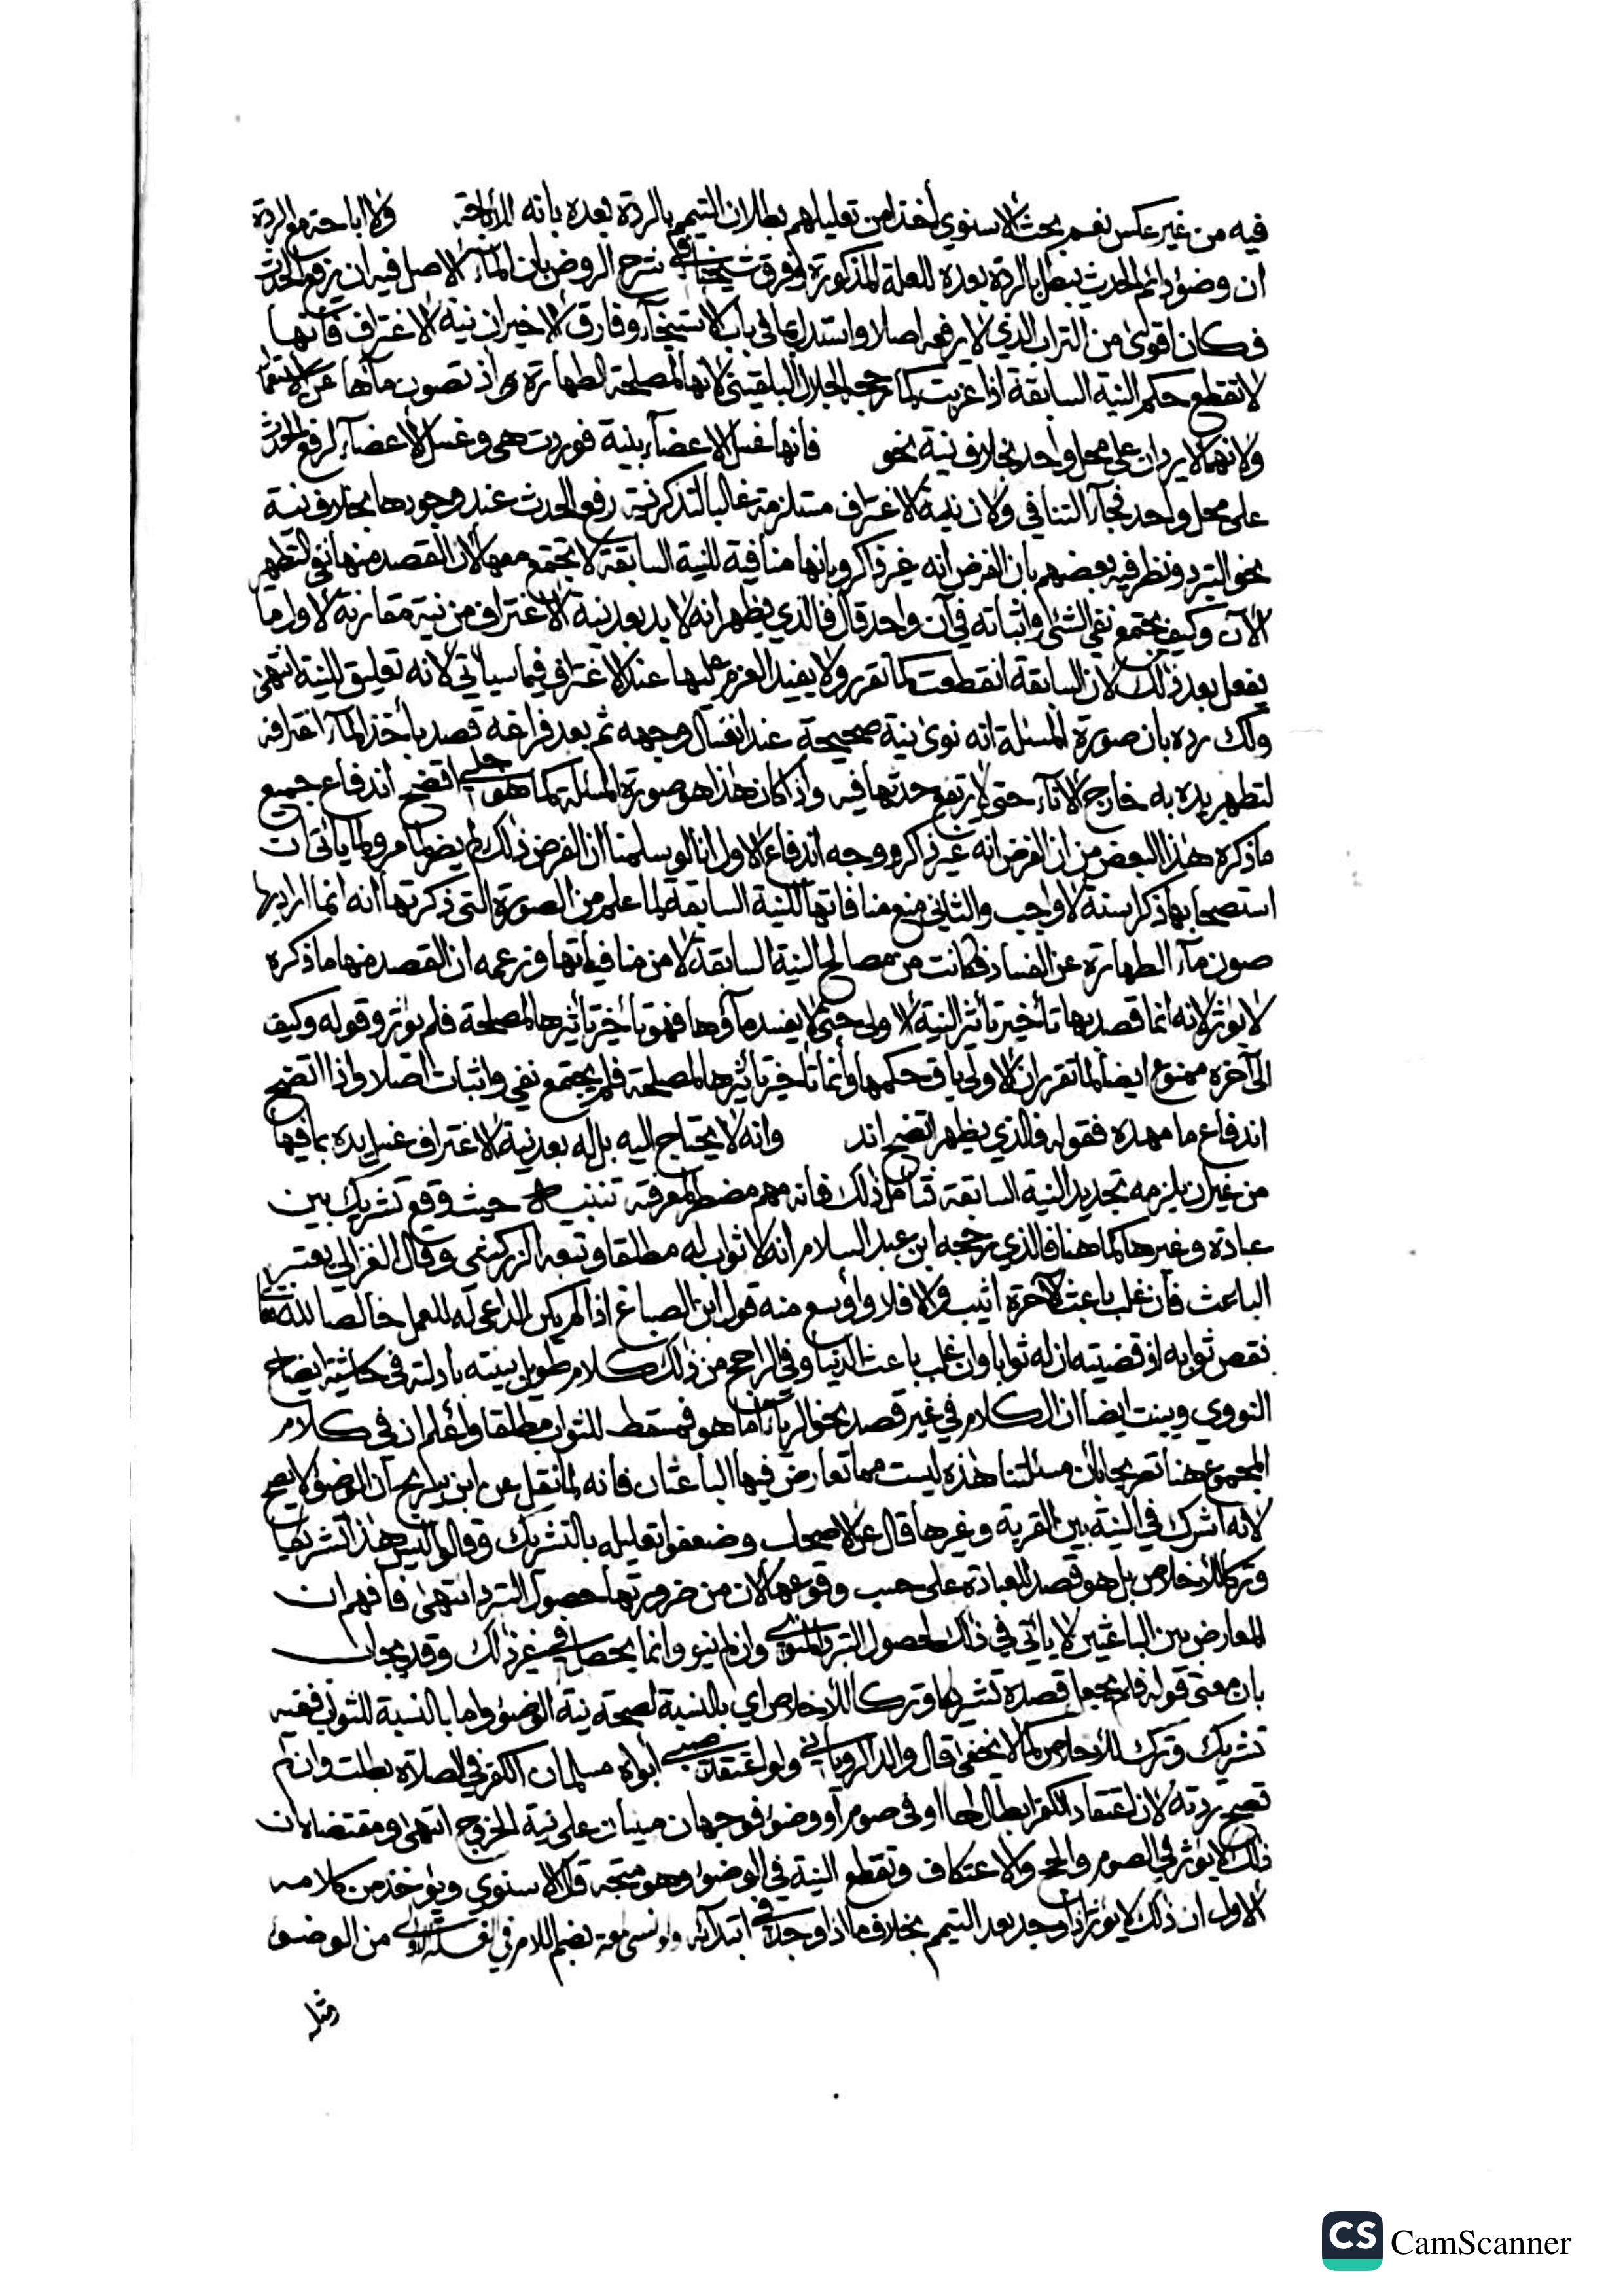 فيه من غير عكس نعم بحث الاسنوي اخذا من تعليلهم بطلان التيمم بالردة بعده بانه للاباحة ولا اباحة مع الردة
ان وضوء دائم الحدث يبطل بالردة بعده للعلة المذكورة وفرق شيخنا في شرح الروض بان الماء الاصل فيه ان يرفع الحدث
فكان اقوى من التراب الذي لا يرفعه اصلا واستدل بما في باب الاستنجاء وفارق الاخيران نية الاغتراف فانها
لا تقطع حكم النية السابقة اذا عزبت كما رجحه الجلال البلقيني لانها لمصلحة الطهارة اذ تصون ماءها عن الاستعمال
ولانهما لا يردان على محل واحد بخلاف نية نحو فانها غسل الاعضاء بنية فوردت هي وغسل الاعضاء لرفع الحدث
على محل واحد فجاء التنافي ولان نية الاغتراف مستلزمة غالبا لتذكر نية رفع الحدث عند وجودها بخلاف نية
نحو التبرد ونظر فيه بعضهم بان الفرض انه غير ذاكر وبانها منافية للنية السابقة لا تجتمع معها لان القصد منها نفي التطهر
الآن وكيف يجتمع نفي الشئ واثباته في آن واحد قال فالذي يظهر انه لا بد بعد نية الاغتراف من نية مقارنة لاول ما
يفعل بعد ذلك لان السابقة انقطعت كما تقرر ولا يفيد العزم عليها عند الاغتراف فيما سياتي لانه تعليق للنية انتهى
ولك رده بان صورة المسئلة انه نوى بنية صحيحة عند انغسال وجهه ثم بعد فراغه قصد باخذ الماء اغترافه
لتطهر يده به خارج الاناء حتى لا يرتفع حدثها فيه واذا كان هذا هو صورة المسئلة كما هو جلي اتضح اندفاع جميع
ما ذكره هذا البعض من ان الفرض انه غير ذاكر ووجه اندفاع الاول انا لو سلمنا ان الفرض ذلك لم يضر لما مر ولما ياتي ان
استصحابها ذكرا سنة لا واجب والثاني منع منافاتها للنية السابقة لما علم من الصورة التي ذكرتها انه انما اراد بها
صون ماء الطهارة عن الفساد فكانت من مصالح النية السابقة لا من منافياتها وزعمه ان القصد منها ما ذكره
لا يؤثر لانه انما قصد بها تاخير تاثير النية الاولى حتى لا يفسد ماؤها فهو تاخير تاثيرها لمصلحة فلم يؤثر وقوله وكيف
الى آخره ممنوع ايضا لما تقرر ان الاولى باق حكمها وانما تاخير تاثيرها لمصلحة فلم يجتمع نفي واثبات اصلا واذا اتضح
اندفاع ما مهده فقوله فالذي يظهر اتضح اند وانه لا يحتاج اليه بل له بعد نية الاغتراف غسل يده بما فيها
من غير ان يلزمه تجديد النية السابقة فتامل ذلك فانه مهم مضطر لمعرفته تنبيه حيث وقع تشريك بين
عبادة وغيرها كما هنا فالذي رجحه ابن عبد السلام انه لا ثواب له مطلقا وتبعه الزركشي وقال الغزالي يعتبر
الباعث فان غلب باعث الآخرة اثيب والا فلا واوسع منه قول ابن الصباغ اذا لم يكن الداعي له للعمل خالصا لله تعالى
نقص ثوابه اذ قضيته ان له ثوابا وان غلب باعث الدنيا وفي الراجح من ذلك كلام طويل بينته بادلته في حاشية ايضاح
النووي وبينت ايضا ان الكلام في غير قصد نحو الرياء اما هو فمسقط للثواب مطلقا واعلم ان في كلام
المجموع هنا تصريحا بان مسئلتنا هذه ليست مما تعارض فيها الباعثان فانه لما نقل عن ابن سريج ان الوضوء لا يصح
لانه اشرك في النية بين القربة وغيرها قال عن الاصحاب وضعفوا تعليله بالتشريك وقالوا ليس هذا تشريكا
وتركا للاخلاص بل هو قصد للعبادة على حسب وقوعها لان من ضرورتها حصول التبرد انتهى فافهم ان
المعارض بين الباعثين لا ياتي في ذلك لحصول التبرد وان لم ينو وانما يحصل في غير ذلك وقد يجاب
بان معنى قوله فلم يجعل قصده تشريكا وتركا للاخلاص اي بالنسبة لصحة نية الوضوء واما بالنسبة للثواب ففيه
تشريك وترك للاخلاص كما لا يخفى قال والد الروياني ولو اعتقد صبي ابواه مسلمان الكفر في الصلاة بطلت وان لم
تصح ردته لان اعتقاد الكفر ابطال لها او في صوم او وضوء فوجهان مبنيان على نية الخروج انتهى ومقتضاه ان
ذلك لا يؤثر في الصوم والحج والاعتكاف وتقطع النية في الوضوء وهو متجه قال الاسنوي ويؤخذ من كلامه
الاول ان ذلك لا يؤثر اذا وجد بعد التيمم بخلاف ما اذا وجد في ابتدائه ولو نسي لمعة بضم اللام في الغسلة الاولى من الوضوء